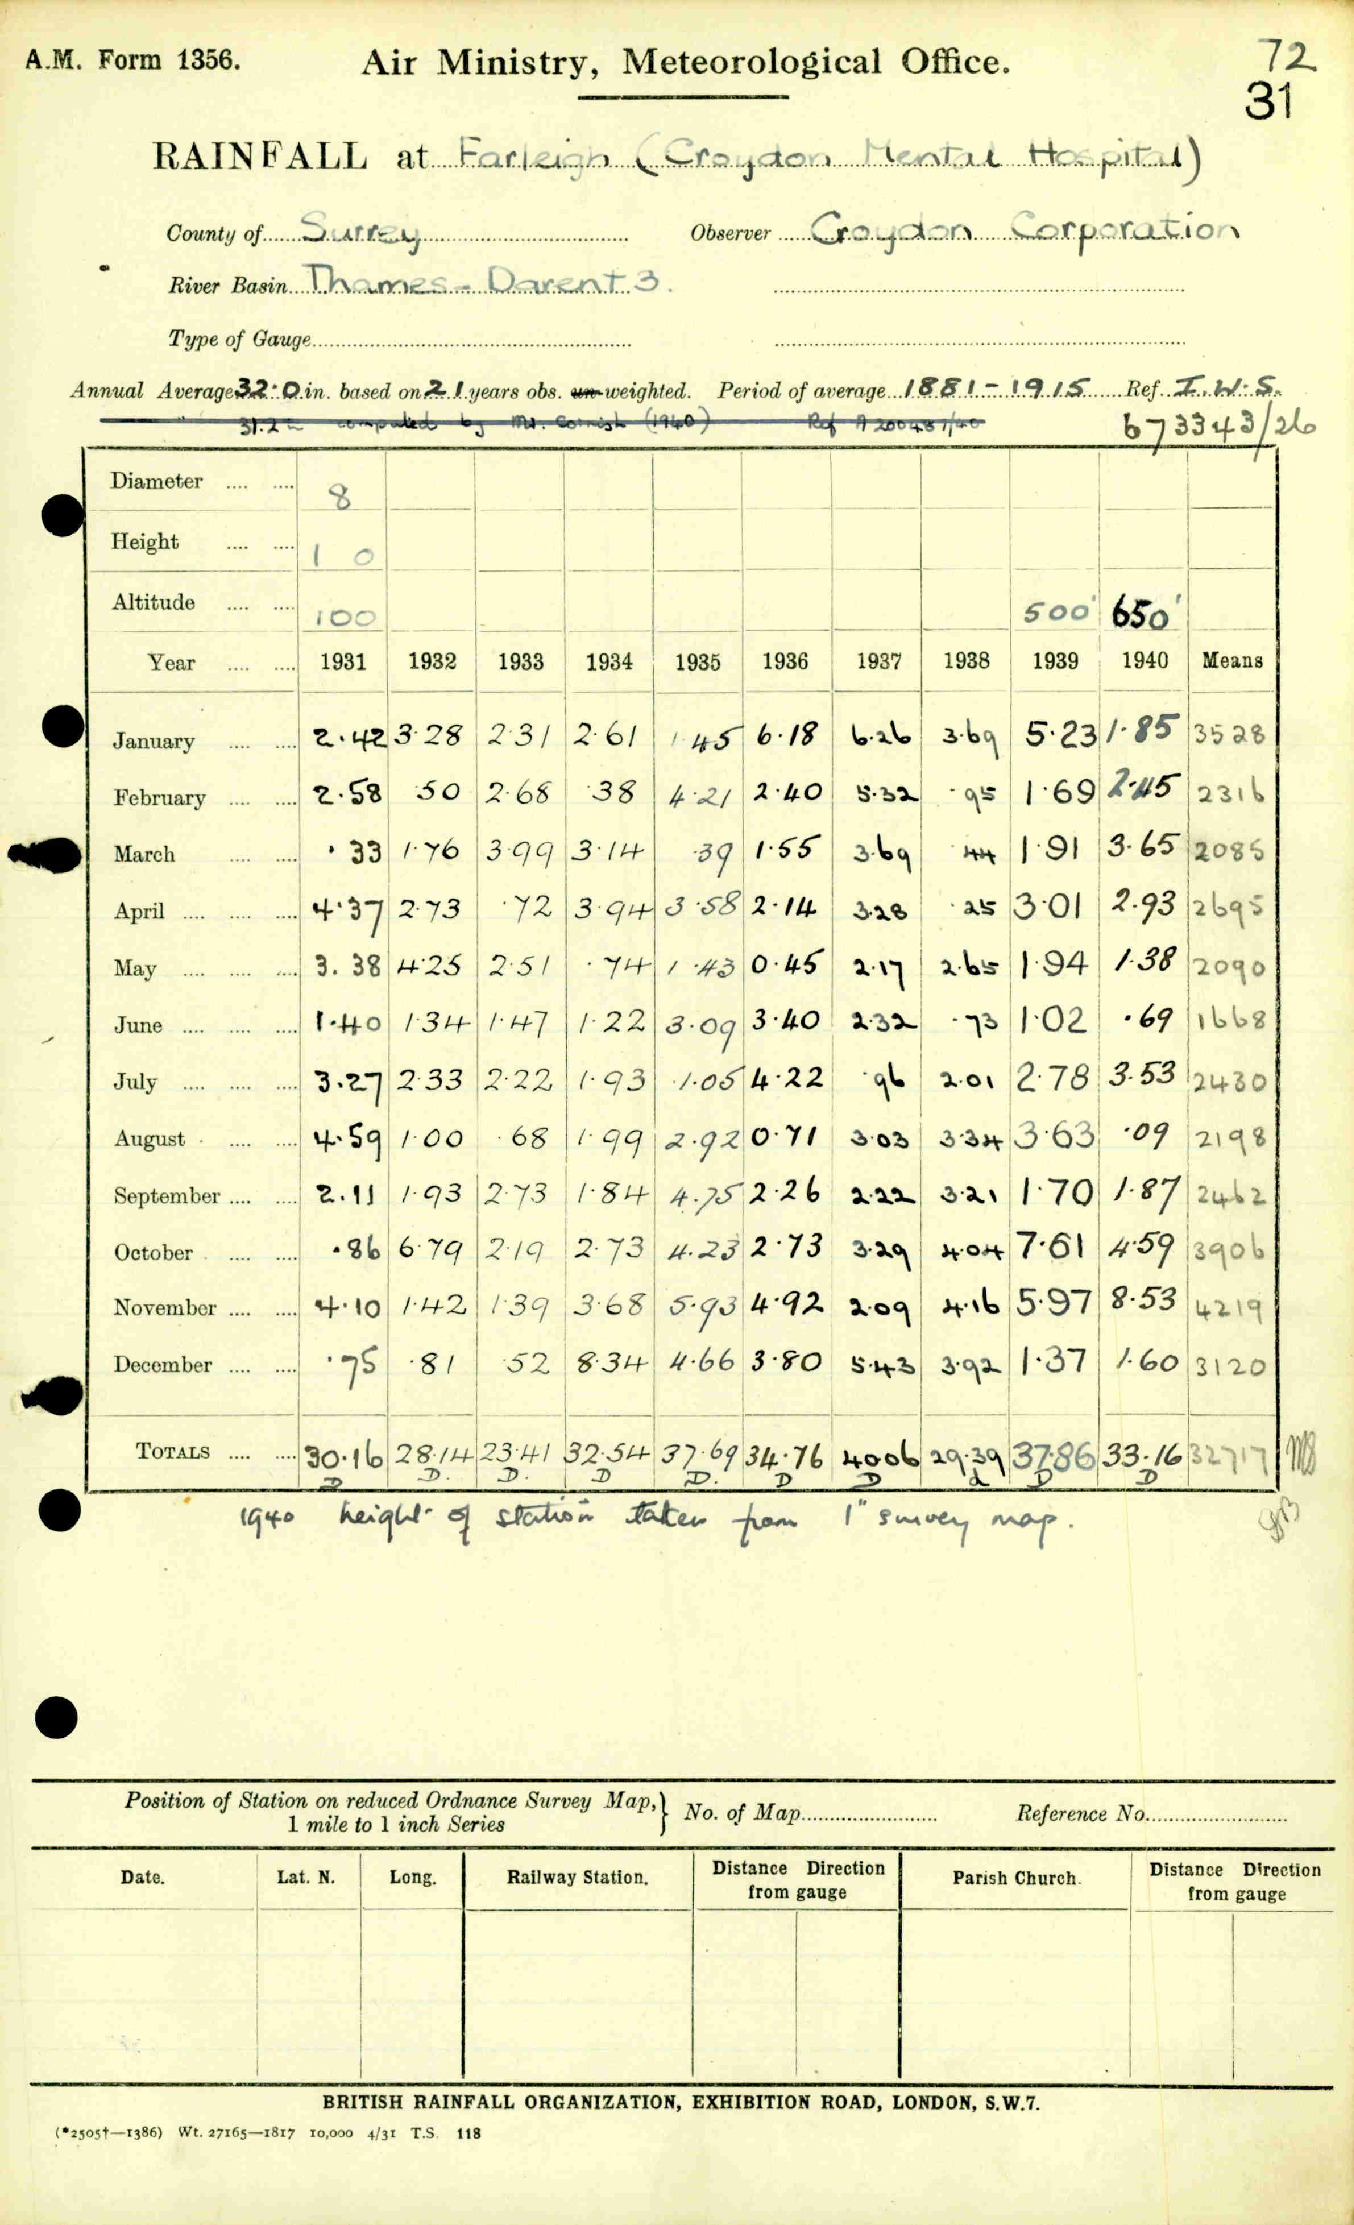 A.M. Form 1356. Air Ministry, Meteorological Office. 72
31
RAINFALL at Farleigh (Croydon Mental Hospital)
County of Surrey Observer Croydon Corporation
River Basin Thames - Darent 3.
Type of Gauge
Annual Average 32.0 in. based on 21 years obs. un-weighted. Period of average 1881-1915 Ref. I.W.S.
31.2 computed by Mr. Cornish (1940) Ref A200487/40 673343/26
Diameter 8
Height 1 0
Altitude 100 500' 650'
Year 1931 1932 1933 1934 1935 1936 1937 1938 1939 1940 Means
January 2.42 3.28 2.31 2.61 1.45 6.18 6.26 3.69 5.23 1.85 3528
February 2.58 .50 2.68 .38 4.21 2.40 5.32 .95 1.69 2.45 2316
March .33 1.76 3.99 3.14 .39 1.55 3.69 .44 1.91 3.65 2085
April 4.37 2.73 .72 3.94 3.58 2.14 3.28 .25 3.01 2.93 2695
May 3.38 4.25 2.51 .74 1.43 0.45 2.17 2.65 1.94 1.38 2090
June 1.40 1.34 1.47 1.22 3.09 3.40 2.32 .73 1.02 .69 1668
July 3.27 2.33 2.22 1.93 1.05 4.22 .96 2.01 2.78 3.53 2430
August 4.59 1.00 .68 1.99 2.92 0.71 3.03 3.34 3.63 .09 2198
September 2.11 1.93 2.73 1.84 4.75 2.26 2.22 3.21 1.70 1.87 2462
October .86 6.79 2.19 2.73 4.23 2.73 3.29 4.04 7.61 4.59 3906
November 4.10 1.42 1.39 3.68 5.93 4.92 2.09 4.16 5.97 8.53 4219
December .75 .81 .52 8.34 4.66 3.80 5.43 3.92 1.37 1.60 3120
TOTALS 30.16 28.14 23.41 32.54 37.69 34.76 40.06 29.39 37.86 33.16 32717
D D. D. D D. D D d D D
1940 height of station taken from 1" survey map.
Position of Station on reduced Ordnance Survey Map,} No. of Map Reference No.
1 mile to 1 inch Series
Date. Lat. N. Long. Railway Station. Distance Direction from gauge Parish Church. Distance Direction from gauge
BRITISH RAINFALL ORGANIZATION, EXHIBITION ROAD, LONDON, S.W.7.
(*2505†—1386) Wt. 27165—1817 10,000 4/31 T.S. 118